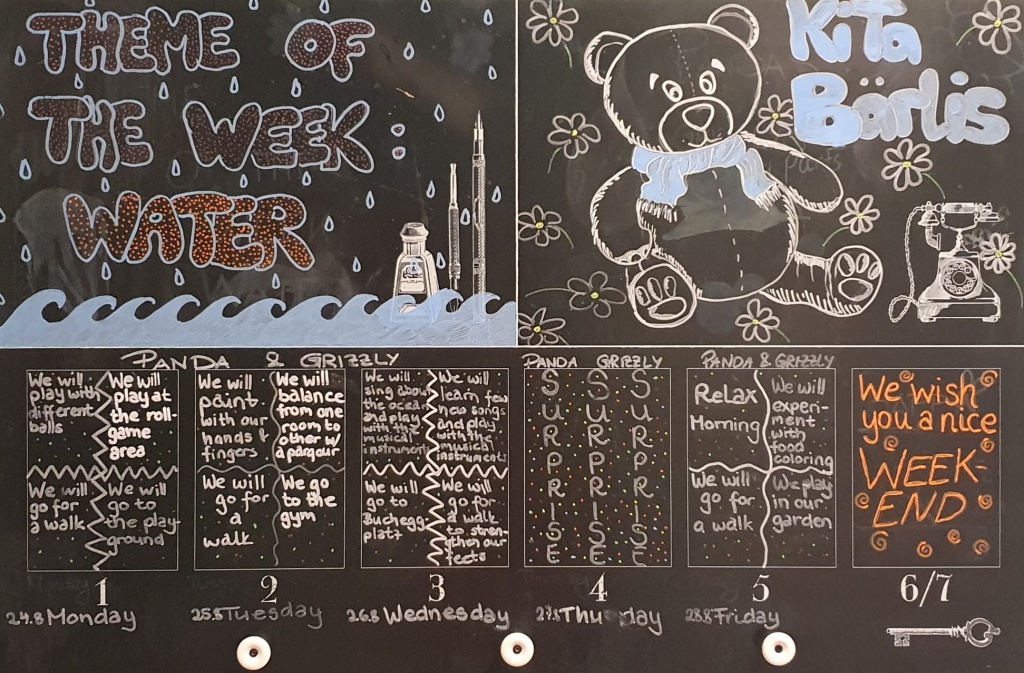 THEME OF
THE WEEK:
WATER
KiTa
Bärlis
PANDA & GRIZZLY
We will
play with
different
balls
We will
play at
the roll-
game
area
We will
go for
a walk
We will
go to
the play
ground
We will
paint
with our
hands &
fingers
We will
balance
from one
room to
other w/
a parqour
We will
go for
a
walk
We go
to the
gym
We will
sing about
the ocean
and play
with the
musical
instruments
We will
learn few
new songs
and play
with the
musical
instruments
We will
go to
Buchegg
platz
We will
go for
a walk
to stren-
gthen our
feets
PANDA GRIZZLY
SURPRISE
SURPRISE
SURPRISE
PANDA & GRIZZLY
Relax
Morning
We will
experi-
ment
with
food
coloring
We will
go for
a walk
We play
in our
garden
We wish
you a nice
WEEK-
END
1
24.8 Monday
2
25.8 Tuesday
3
26.8 Wednesday
4
27.8 Thu day
5
28.8 Friday
6/7